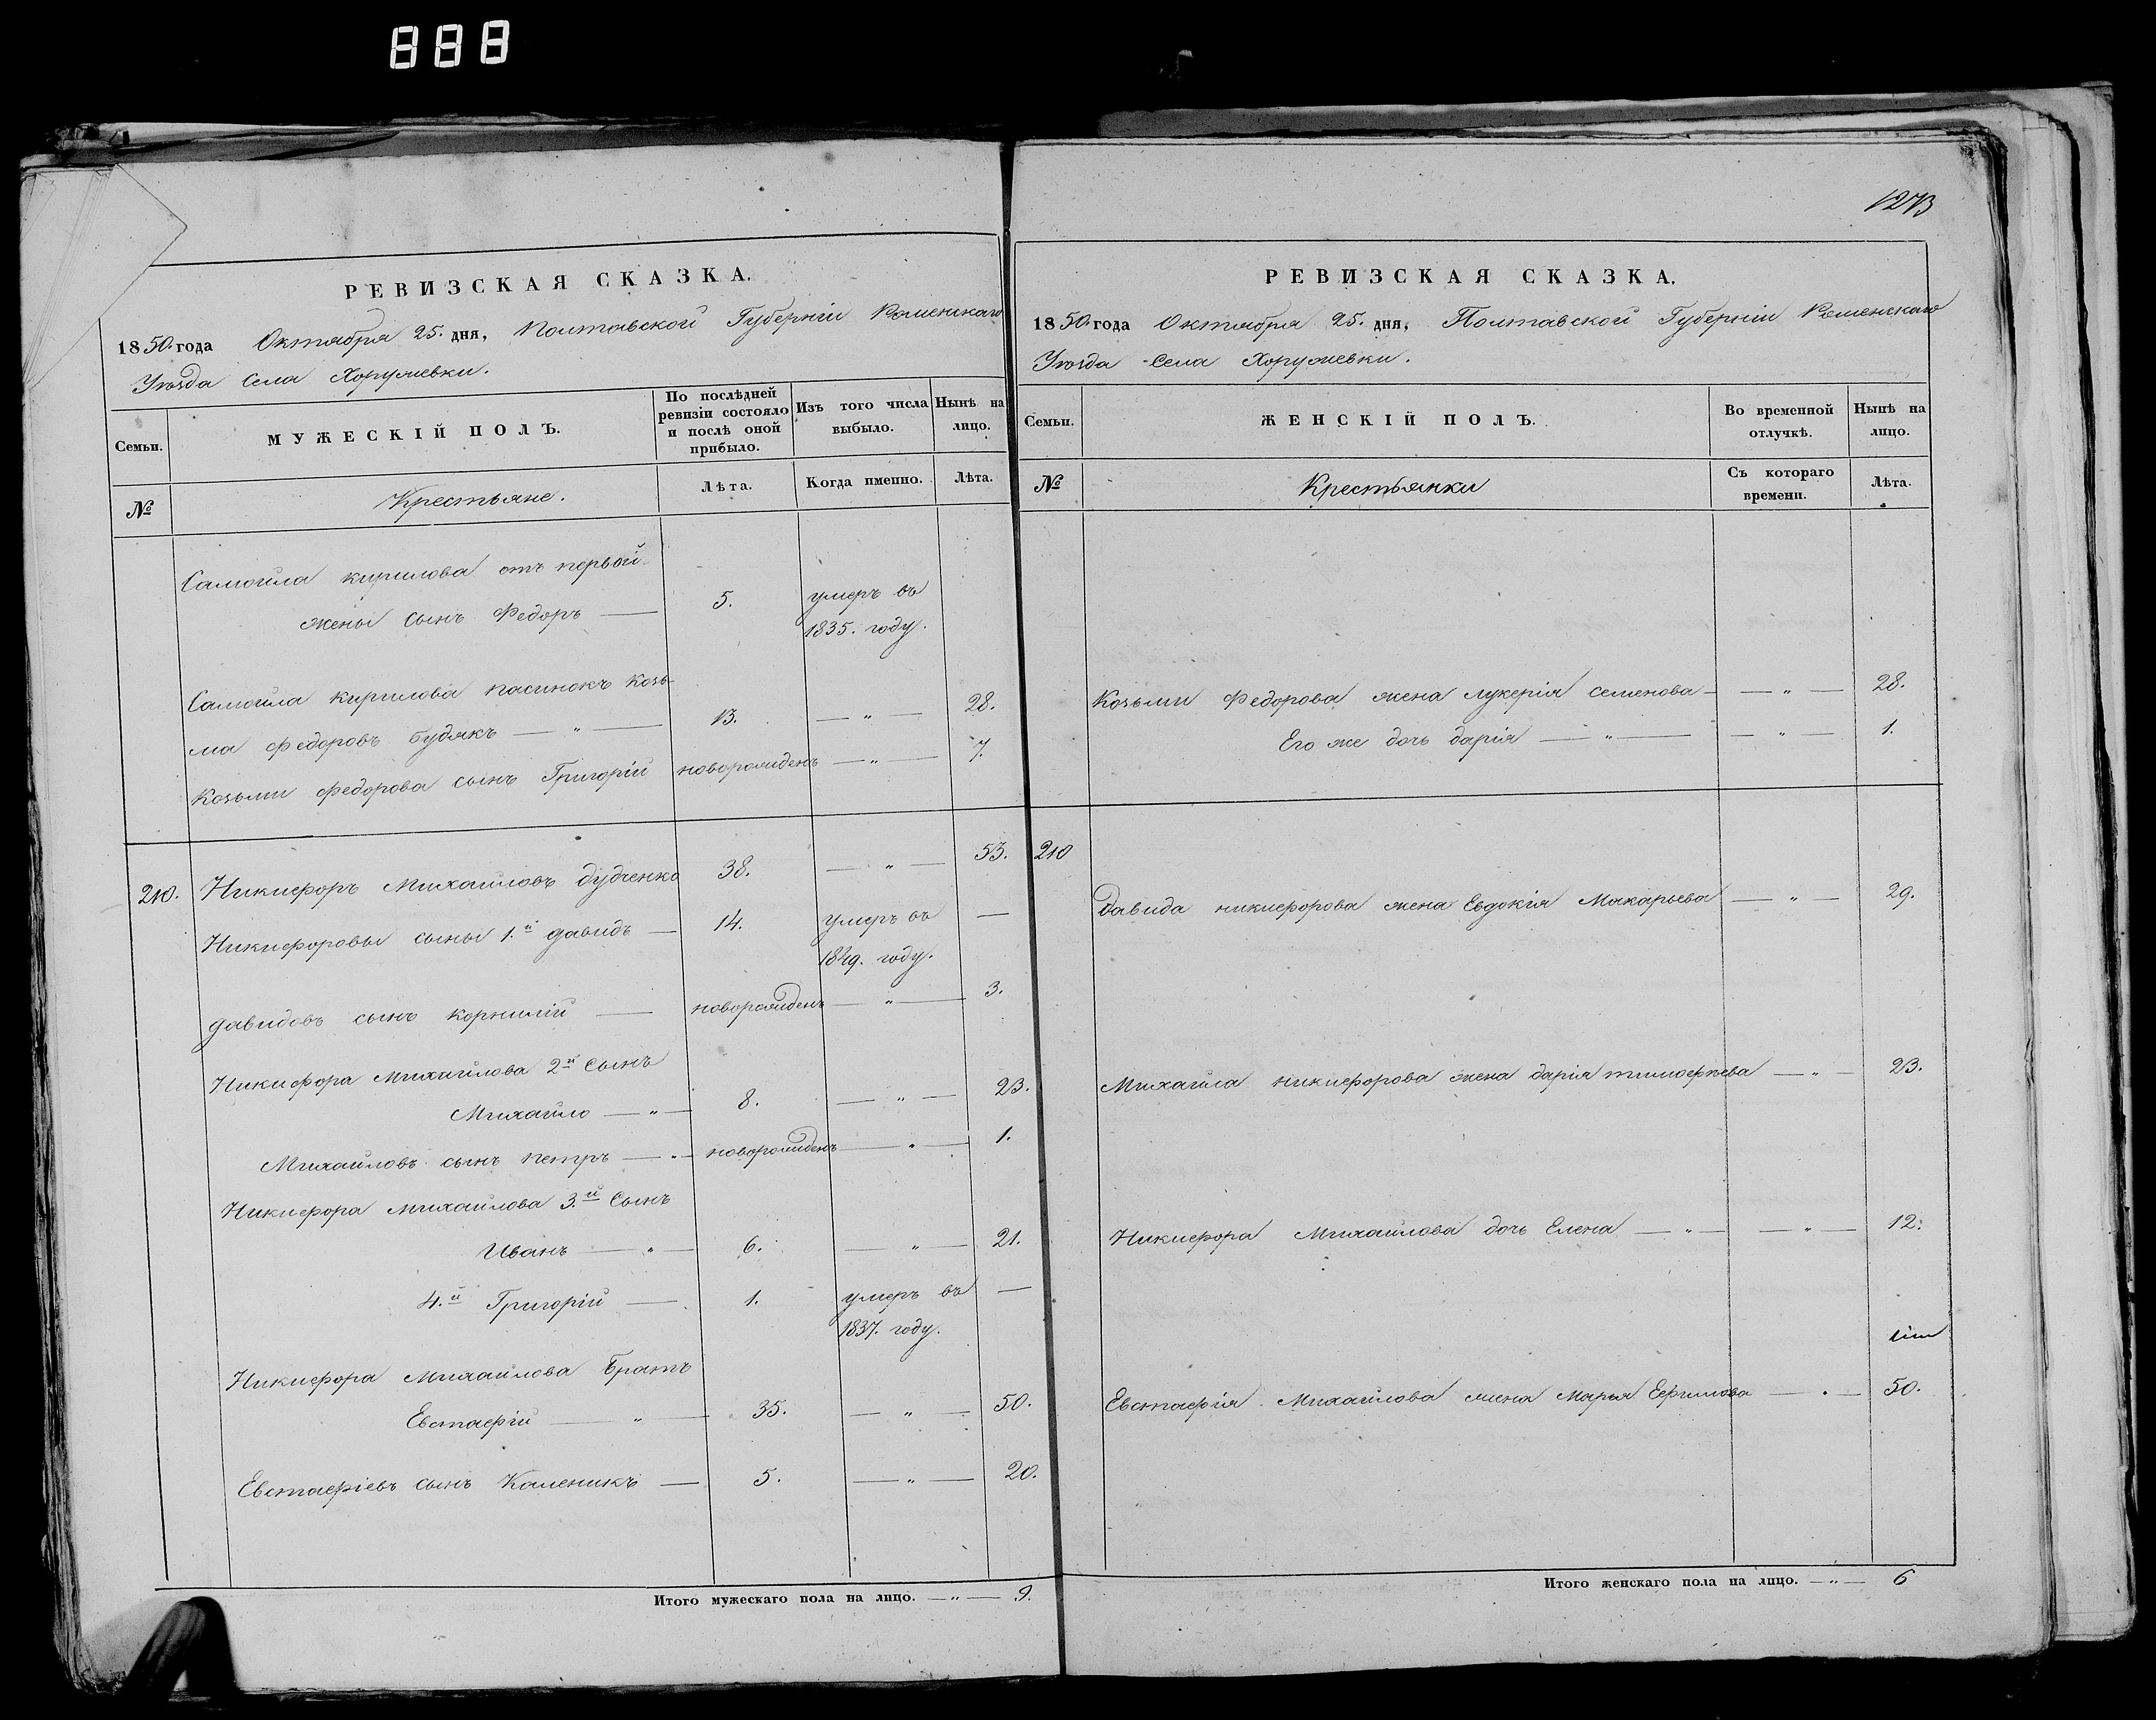 888
РЕВИЗСКАЯ СКАЗКА.
1850. года Октября 25. дня, Полтавской Губерніи Роменскаго
Уѣзда Села Хоружевки.
Семьи.
МУЖЕСКІЙ ПОЛЪ.
По послѣдней
ревизіи состояло
и послѣ оной
прибыло.
Изъ того числа
выбыло.
Нынѣ на
лицо.
№
Крестьяне.
Лѣта.
Когда именно.
Лѣта.
Самойла кирилова отъ первой
жены сынъ Федоръ — 5. умеръ въ
1835. году.
Самойла кирилова пасинокъ Козь-
ма федоровъ будякъ — „ — 13. — „ — 28.
Козьми федорова сынъ Григорій новорожденъ — „ — 7.
210. Никифоръ Михайловъ дудченко 38. — „ — 53.
Никифоровы сыны 1.й давидъ — 14. умеръ въ —
1849. году.
давидовъ сынъ корнилій — новорожденъ — „ — 3.
Никифора Михайлова 2й Сынъ
Михайло — „ — 8. — „ — 23.
Михайловъ сынъ петръ — „ — новорожденъ — „ — 1.
Никифора михайлова 3.й Сынъ
Иванъ — „ — 6. — „ — 21.
4.й Григорій — 1. умеръ въ —
1837. году.
Никифора Михайлова Братъ
Евстафій — „ — 35. — „ — 50.
Евстафіевъ сынъ Каленикъ — 5. — „ — 20.
Итого мужескаго пола на лицо. — „ — 9.
1273
РЕВИЗСКАЯ СКАЗКА.
1850. года Октября 25. дня, Полтавской Губерніи Роменскаго
Уѣзда Села Хоружевки.
Семьи.
ЖЕНСКІЙ ПОЛЪ.
Во временной
отлучкѣ.
Нынѣ на
лицо.
№
Крестьянки
Съ котораго
времени.
Лѣта.
Козьми Федорова жена лукерія семенова — — „ — 28.
Его же дочь дарія — „ — — „ — 1.
210
Давида никифорова жена Евдокія Макарьева — „ — 29.
Михайла никифорова жена дарія тимофѣева — „ — 23.
Никифора Михайлова дочь Елена — „ — — „ — 12.
Евстафія Михайлова жена Марья Ефимова — „ — 50.
Итого женскаго пола на лицо. — „ — 6